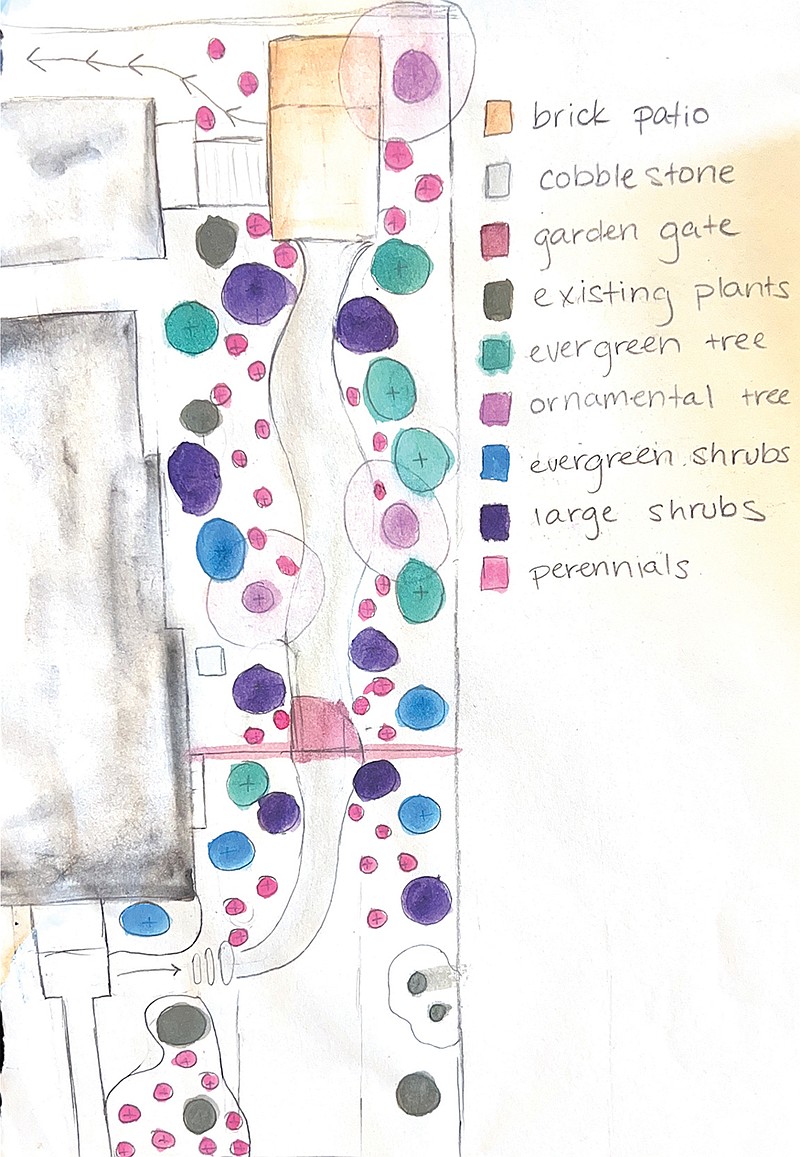 brick patio
cobblestone
garden gate
existing plants
evergreen tree
ornamental tree
evergreen shrubs
large shrubs
perennials